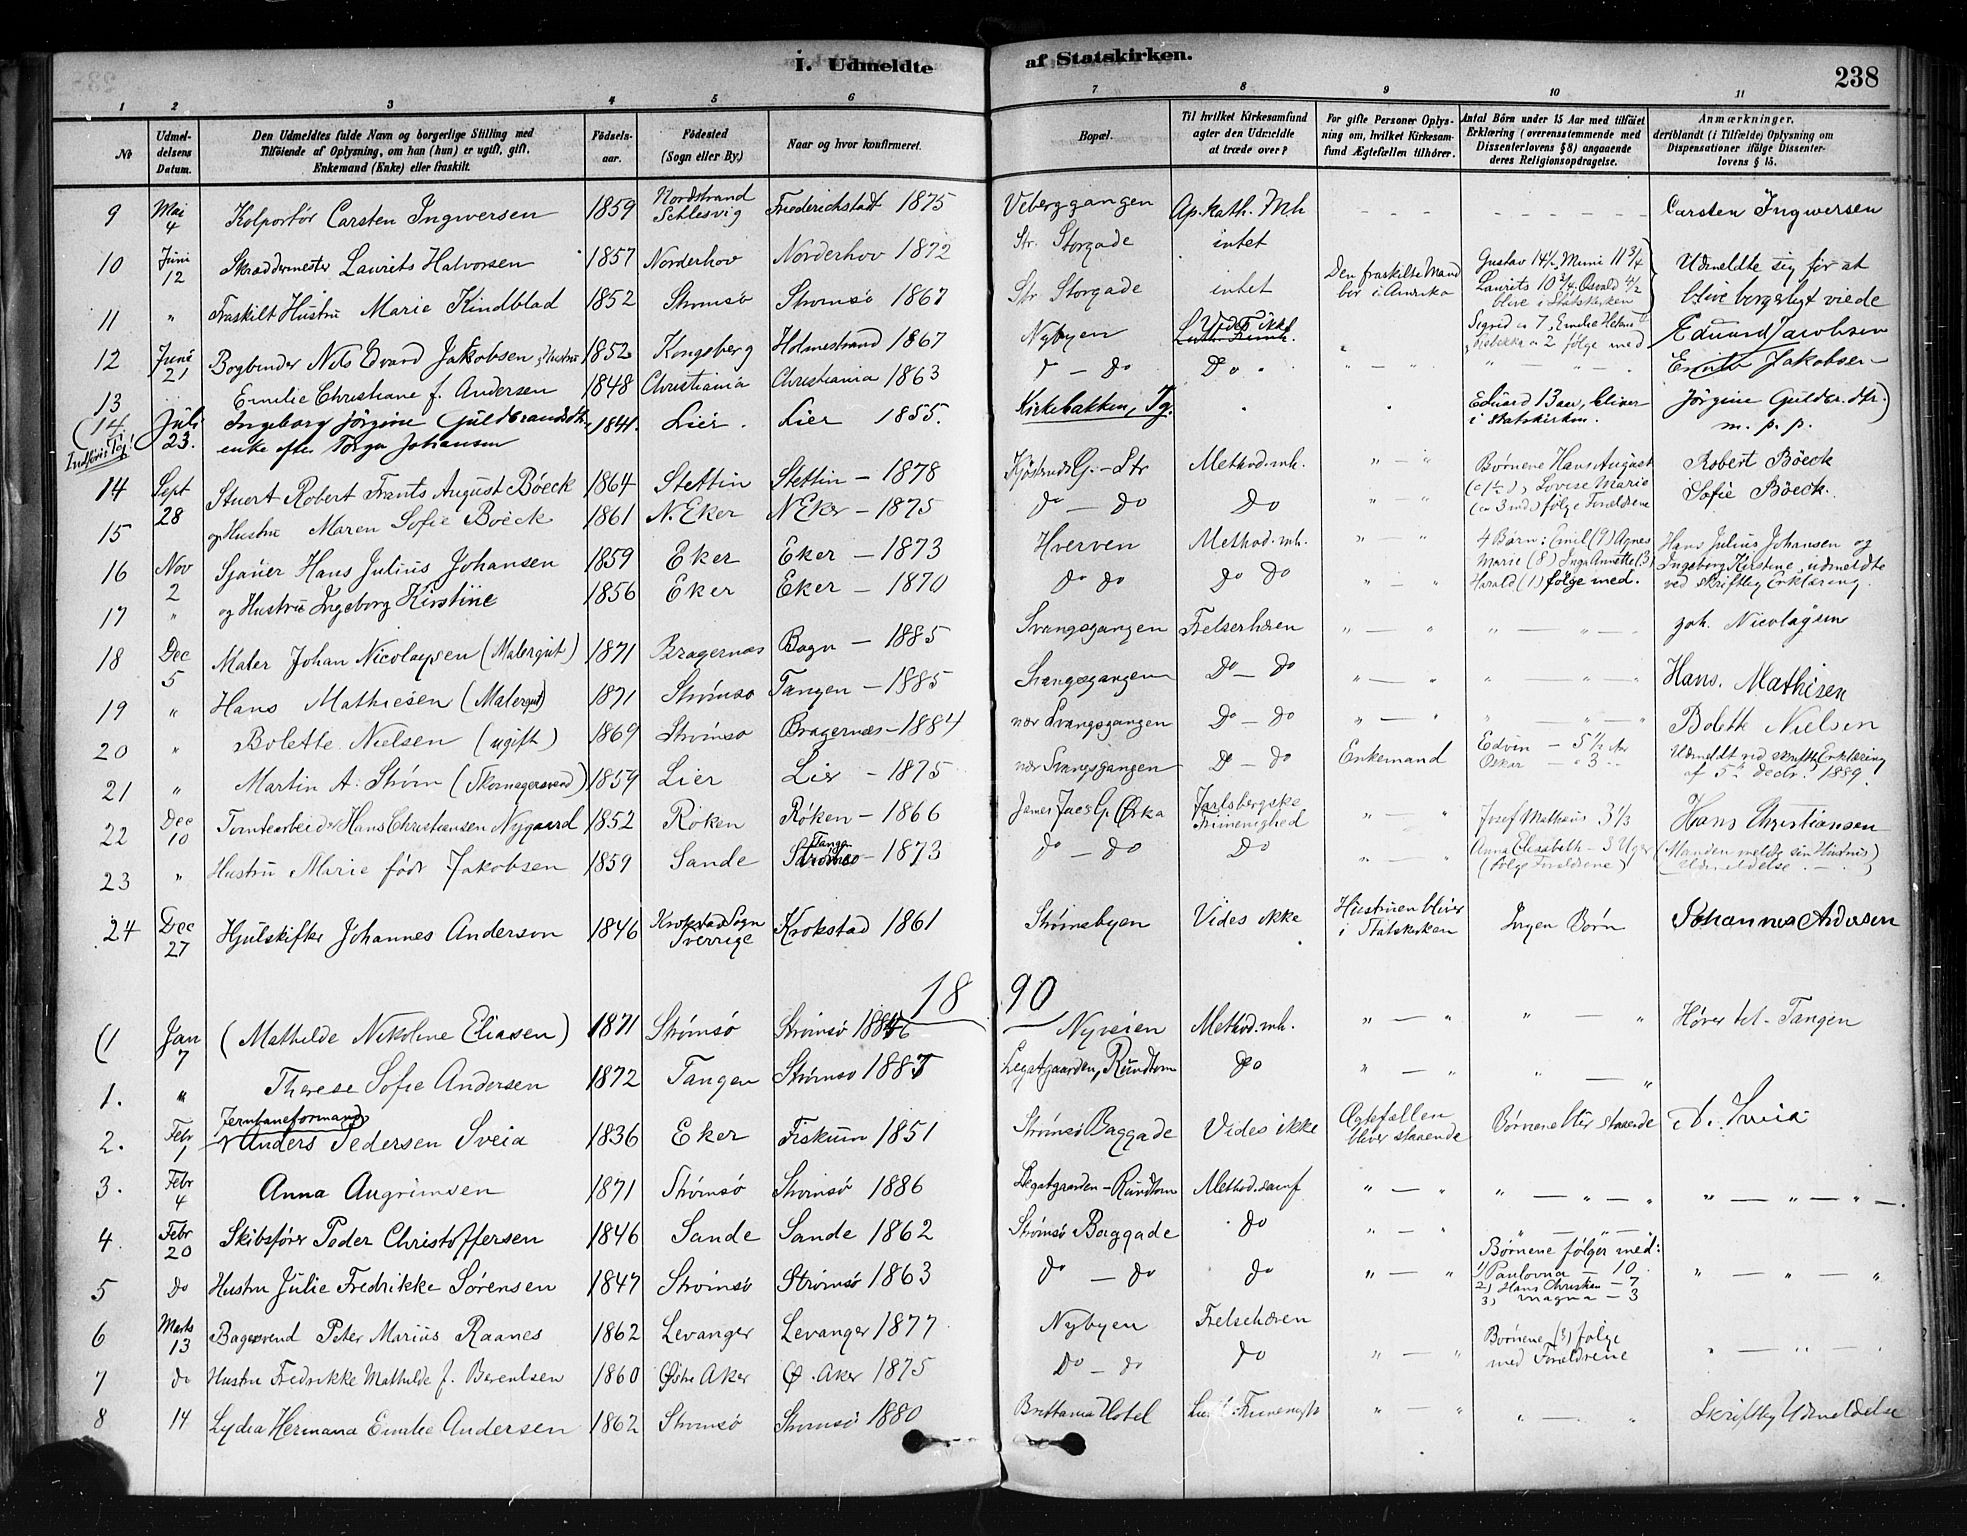 I. Udmeldte af Statskirken. 238
1 2 3 4 5 6 7 8 9 10 11
No
Udmeldelsens Datum.
Den Udmeldtes fulde Navn og borgerlige Stilling med
Tilføiende af Oplysning, om han (hun) er ugift, gift,
Enkemand (Enke) eller fraskilt.
Fødselsaar.
Fødested
(Sogn eller By.)
Naar og hvor konfirmeret.
Bopæl.
Til hvilket Kirkesamfund
agter den Udmeldte
at træde over?
For gifte Personer Oplysning om, hvilket Kirkesamfund Ægtefællen tilhører.
Antal Børn under 15 Aar med tilføiet
Erklæring (overensstemmende med
Dissenterlovens § 8) angaaende
deres Religionsopdragelse.
Anmærkninger,
deriblandt (i Tilfælde) Oplysning om
Dispensationer ifølge Dissenterlovens § 15.
9 Mai 4 Kolportør Carsten Ingwersen 1859 Nordstrand Schlesvig Friederichstadt 1875 Veberggangen Ap. kath. Mh - - - - - - Carsten Ingwersen
10 Juni 12 Skræddermester Laurits Halvorsen 1857 Norderhov Norderhov 1872 Str. Storgade intet Gustav 14½, Mimi 11¾ Udmeldte sig for at
11 " Fraskilt Hustru Marie Kindblad 1852 Strømsø Strømsø 1867 Str Storgade intet Den fraskilte Mand bor i Amerika Laurits 10¾, Osvald 4½ blive i Statskirken blive borgerligt viede
12 Juni 21 Bogbinder Nils Edvard Jakobsen, Hustru 1852 Kongsberg Holmestrand 1867 Nybyen Vides ikke " Sigrid 7, Emilie Helene 2 følge med Eduard Jacobsen
13 Emilie Christiane f. Andersen 1848 Christiania Christiania 1863 Do - Do Do " " - " " - " - " Emilie Jakobsen
(14 Juli 23. Ingeborg Jørgine Guldbrandsdtr. enke efter Torger Johansen 1841. Lier. Lier 1855. Kirkebakken, Tg. " " Eduard 13 aar, bliver i statskirken. Jørgine Guldbr. dtr.) m. p. p.
14 Sept 28 Stuert Robert Frants August Böeck 1864 Stettin Stettin - 1878 G. - Str Method. mh. " - " Børnene Hans August Robert Böeck
15 og Hustru Maren Sofie Boëck 1861 N. Eker N Eker - 1875 Do - Do Do " - " (c 1½), Lovise Marie (ca 3 md) følge Forældrene Sofie Böeck.
16 Nov 2 Sjauer Hans Julius Johansen 1859 Eker Eker - 1873 Hverven Method. mh. " - " 4 Børn: Emil (9) Agnes Marie (8) Inga Annette (3) Hans Julius Johansen og
17 " og Hustru Ingeborg Kirstine 1856 Eker Eker - 1870 Do Do Do Do " - " Harald (1) følge med. Ingeborg Kirstine, udmeldte ved skriftlig Erklæring.
18 Dec 5 Maler Johan Nicolaysen (Malergut) 1871 Bragernæs Bagn - 1885 Svangsgangen Frelserhæren " - " " - " - " Joh. Nicolaysen
19 " Hans Mathiesen (Malergut) 1871 Strømsø Tangen - 1885 Svangsgangen Do - Do " - " " - " - " Hans. Mathisen
20 " Bolette Nielsen (ugift) 1869 Strømsø Bragernæs - 1884 nær Svangsgangen Do - Do " - " " - " - " Bolette Nielsen
21 " Martin A. Strøm (Skomagersvend) 1859 Lier Lier - 1875 nær Svangsgangen Do - Do Enkemand Edvin - 5½ Aar Oskar - 3 " Udmeldt ved skriftlig Erklæring af 5te decbr. 1889.
22 Dec 10 Tomtearbeider Hans Christiansen Nygaard 1852 Røken Røken - 1866 Jarlsbergske Frimenighed " - " Josef Mathæus 3⅓ Hans Christiansen
23 " Hustru Marie født Jakobsen 1859 Sande Tangen Strømsø - 1873 Do - Do Do " - " Anna Elisabeth - 3 Uger (følge Forældrene) (Manden meldte sin Hustrus) Udmeldelse.
24 Dec 27 Hjulskifter Johannes Anderson 1846 Krokstad Sogn Sverrige Krokstad 1861 Strømsbyen Vides ikke Hustruen bliver i Statskirken Ingen Børn Johannes Andersen
1890
(1 Jan 7 (Mathilde Nikoline Eliasen) 1871 Strømsø Strømsø 1886 Nyveien Method. mh. " - " " - " Hører til Tangen
1. " Therese Sofie Andersen 1872 Tangen Strømsø 1887 Legatgaarden, Rundtom Do " - " " - "
2. Febr 1 Jernbaneformand Anders Pedersen Sveia 1836 Eker Fiskum 1851 Strømsø Baggade Vides ikke Ægtefællen bliver staaende Børnene blir staaende A. Sveia
3. Febr 4 Anna Augrimsen 1871 Strømsø Strømsø 1886 Legatgaarden - Rundtom Method. samf " - " " - " - " " - " - " -
4. Febr 20 Skibsfører Peder Christoffersen 1846 Sande Sande 1862 Strømsø Baggade Do " - " Børnene følger med:
5 do Hustru Julie Fredrikke Sørensen 1847 Strømsø Strømsø 1863 Do - Do Do " - " 1) Paulovna - 10. 2) Hans Christian - 7 3) Magna - 3 " - " - "
6 Marts 13 Bagersvend Peter Marius Raanes 1862 Levanger Levanger 1877 Nybyen Frelsehæren Børnene (3) følge
7 do Hustru Fredrikke Mathilde f. Berentsen 1860 Østre Aker Ø. Aker 1875 Do - do Do " - " med Forældrene " - " - "
8 14 Lydia Hermana Emilie Andersen 1862 Strømsø Strømsø 1880 Brittania Hotel Luth. Frimenigh " - " " - " Skriftlig Udmeldelse